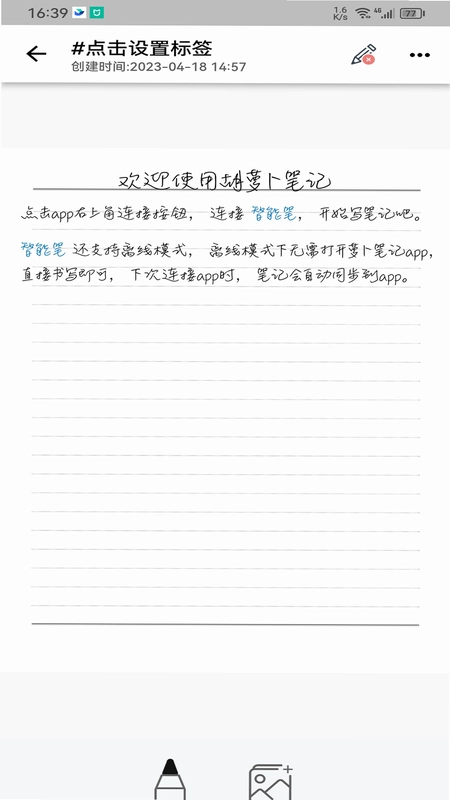 16:39
1.6 K/s
4G
77
#点击设置标签
创建时间:2023-04-18 14:57
欢迎使用胡萝卜笔记
点击app右上角连接按钮， 连接 智能笔， 开始写笔记吧。
智能笔 还支持离线模式， 离线模式下无需打开萝卜笔记app，
直接书写即可， 下次连接app时， 笔记会自动同步到app。